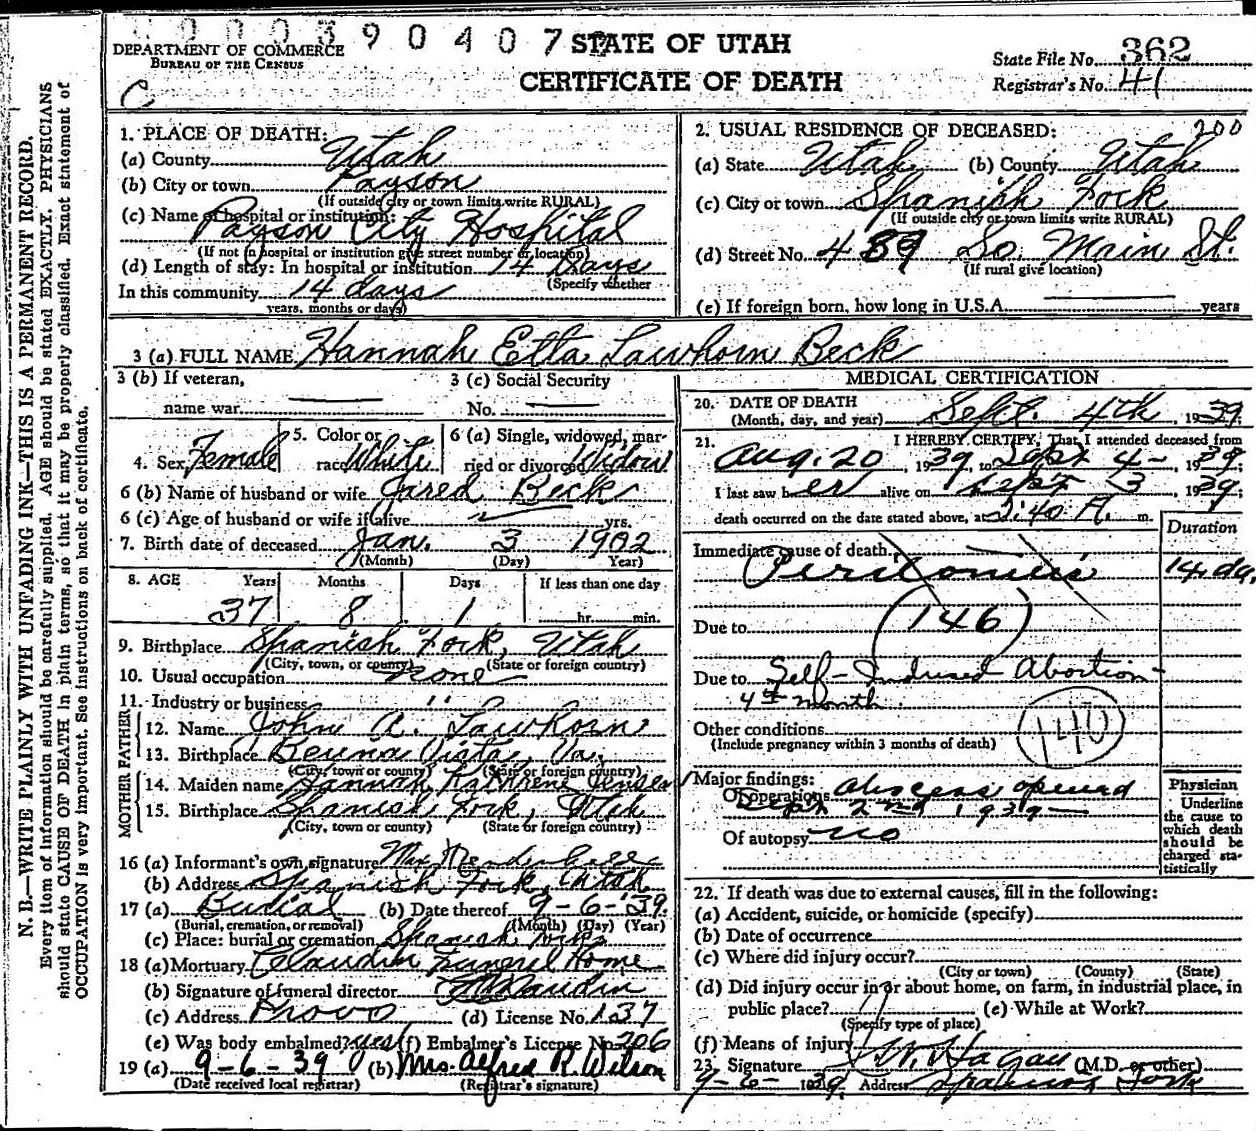 00039040 7
DEPARTMENT OF COMMERCE
BUREAU OF THE CENSUS
STATE OF UTAH
CERTIFICATE OF DEATH
State File No. 362
Registrar's No. 41
C
N. B.—WRITE PLAINLY WITH UNFADING INK—THIS IS A PERMANENT RECORD.
Every item of information should be carefully supplied. AGE should be stated EXACTLY. PHYSICIANS
should state CAUSE OF DEATH in plain terms, so that it may be properly classified. Exact statement of
OCCUPATION is very important. See instructions on back of certificate.
1. PLACE OF DEATH:
(a) County Utah
(b) City or town Payson
(If outside city or town limits write RURAL)
(c) Name of hospital or institution:
Payson City Hospital
(If not in hospital or institution give street number or location)
(d) Length of stay: In hospital or institution 14 Days
(Specify whether
In this community 14 days
years, months or days)
2. USUAL RESIDENCE OF DECEASED: 200
(a) State Utah (b) County Utah
(c) City or town Spanish Fork
(If outside city or town limits write RURAL)
(d) Street No. 489 So. Main St.
(If rural give location)
(e) If foreign born, how long in U.S.A. years
3 (a) FULL NAME Hannah Etta Lawhorn Beck
3 (b) If veteran,
name war
3 (c) Social Security
No.
4. Sex Female
5. Color or
race White
6 (a) Single, widowed, mar-
ried or divorced Widow
6 (b) Name of husband or wife Jared Beck
6 (c) Age of husband or wife if alive yrs.
7. Birth date of deceased Jan. 3 1902
(Month) (Day) Year)
8. AGE Years Months Days If less than one day
37 8 1 hr. min.
9. Birthplace Spanish Fork, Utah
(City, town, or county) (State or foreign country)
10. Usual occupation none
11. Industry or business "
FATHER
12. Name John A. Lawhorn
13. Birthplace Beuna Vista, Va.
(City, town or county) (State or foreign country)
MOTHER
14. Maiden name Hannah Kathrene Jensen
15. Birthplace Spanish Fork, Utah
(City, town or county) (State or foreign country)
16 (a) Informant's own signature Max Mendenhall
(b) Address Spanish Fork, Utah
17 (a) Burial (b) Date thereof 9-6-'39.
(Burial, cremation, or removal) (Month) (Day) (Year)
(c) Place: burial or cremation Spanish Fork
18 (a) Mortuary Claudin Funeral Home
(b) Signature of funeral director Claudin
(c) Address Provo (d) License No. 137
(e) Was body embalmed? yes (f) Embalmer's License No. 206
19 (a) 9-6-39 (b) Mrs. Alfred R. Wilson
(Date received local registrar) (Registrar's signature)
MEDICAL CERTIFICATION
20. DATE OF DEATH
(Month, day, and year) Sept. 4th, 1939.
21. I HEREBY CERTIFY, That I attended deceased from
Aug. 20, 1939, to Sept 4-, 1939
I last saw her alive on Sept 3, 1939,
death occurred on the date stated above, at 2:40 A. m.
Duration
Immediate cause of death
Peritonitis 14 da.
Due to (146)
Due to Self-Induced Abortion-
4th month.
Other conditions
(Include pregnancy within 3 months of death)
140
Major findings:
Of operations abscess opened
Sept 2nd 1939-
Of autopsy no
Physician
Underline
the cause to
which death
should be
charged sta-
tistically
22. If death was due to external causes, fill in the following:
(a) Accident, suicide, or homicide (specify)
(b) Date of occurrence
(c) Where did injury occur?
(City or town) (County) (State)
(d) Did injury occur in or about home, on farm, in industrial place, in
public place? (e) While at Work?
(Specify type of place)
(f) Means of injury
23. Signature Hagan (M.D. or other)
9-6-1939. Address Spanish Fork